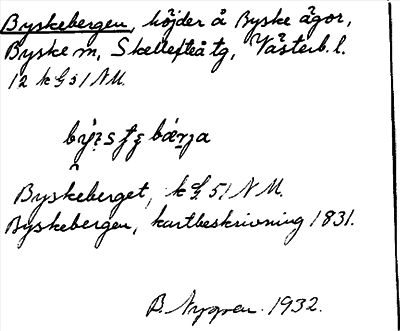 Byskebergen, höjder å Byske ägor,
Byske sn, Skellefteå tg, Västerb. l.
12 k G 51 NM.
Byskeberget, k G 51 NM.
Byskebergen, kartbeskrivning 1831.
B. Nygren. 1932.